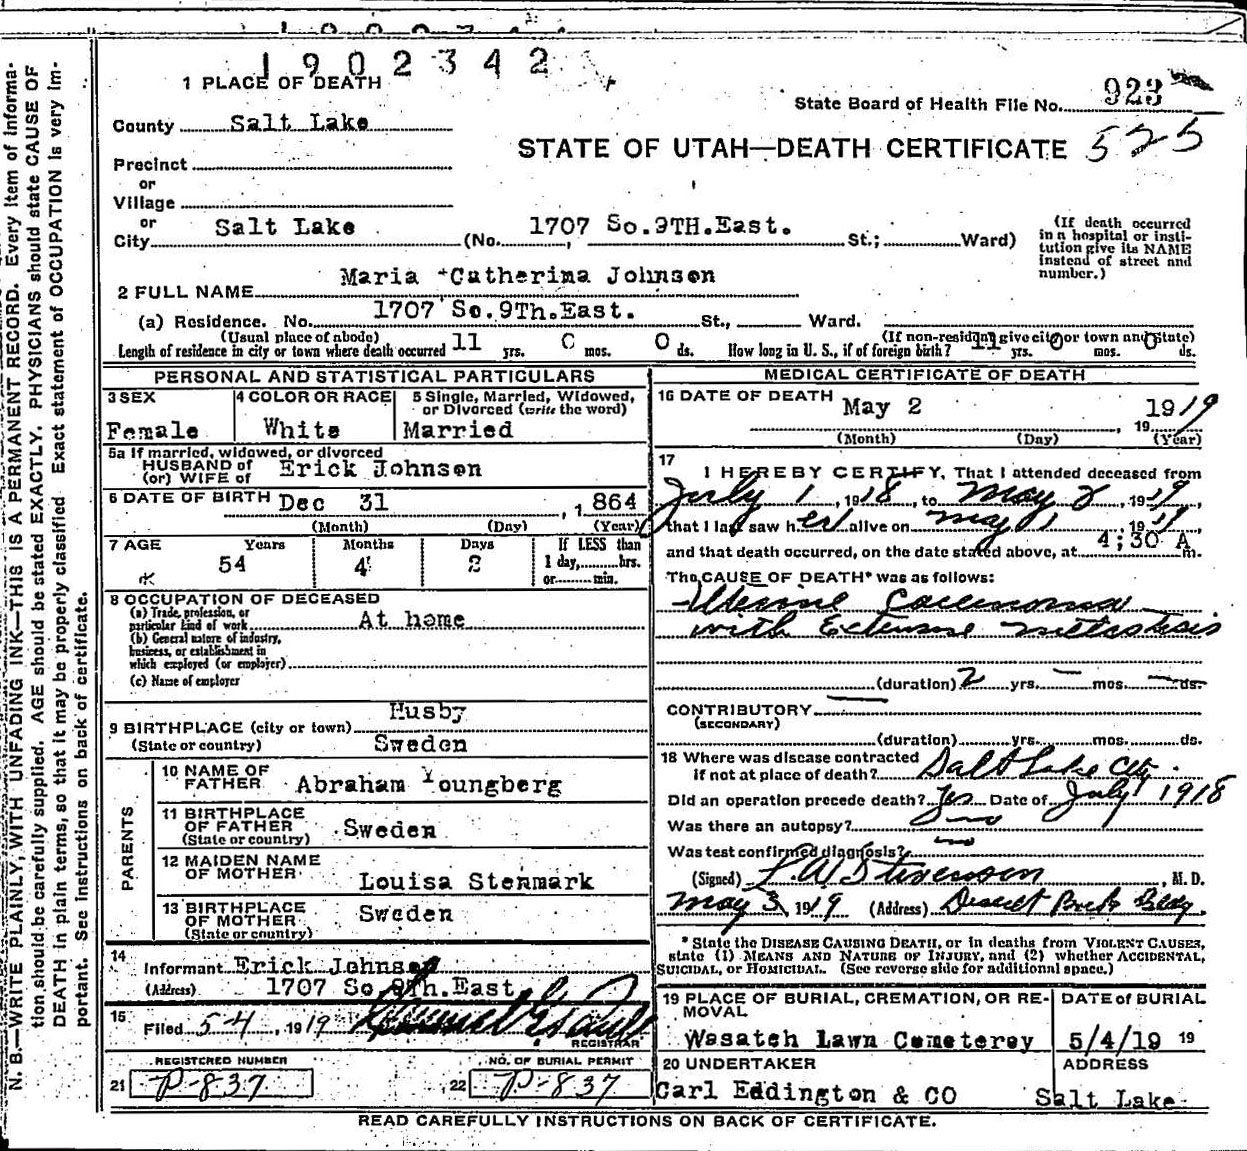 1902342
1 PLACE OF DEATH
State Board of Health File No. 923
County Salt Lake
STATE OF UTAH—DEATH CERTIFICATE 525
Precinct
or
Village
or
City Salt Lake (No. 1707 So.9TH.East. St.; Ward)
(If death occurred in a hospital or institution give its NAME instead of street and number.)
2 FULL NAME Maria Catherina Johnson
(a) Residence. No. 1707 So.9Th.East. St., Ward.
(Usual place of abode) (If non-resident give city or town and State)
Length of residence in city or town where death occurred 11 yrs. 0 mos. 0 ds. How long in U. S., if of foreign birth? 11 yrs. 0 mos. 0 ds.
PERSONAL AND STATISTICAL PARTICULARS
3 SEX Female
4 COLOR OR RACE White
5 Single, Married, Widowed, or Divorced (write the word) Married
5a If married, widowed, or divorced
HUSBAND of
(or) WIFE of Erick Johnson
6 DATE OF BIRTH Dec 31, 1864
(Month) (Day) (Year)
7 AGE Years Months Days If LESS than
54 4 2 1 day,......hrs.
or......min.
8 OCCUPATION OF DECEASED
(a) Trade, profession, or
particular kind of work At home
(b) General nature of industry,
business, or establishment in
which employed (or employer)
(c) Name of employer
9 BIRTHPLACE (city or town) Husby
(State or country) Sweden
PARENTS
10 NAME OF
FATHER Abraham Youngberg
11 BIRTHPLACE
OF FATHER Sweden
(State or country)
12 MAIDEN NAME
OF MOTHER Louisa Stenmark
13 BIRTHPLACE
OF MOTHER Sweden
(State or country)
14
Informant Erick Johnson
(Address) 1707 So 9Th.East
15
Filed 5-4, 1919
REGISTRAR
REGISTERED NUMBER
21 P-837
NO. OF BURIAL PERMIT
22 P-837
MEDICAL CERTIFICATE OF DEATH
16 DATE OF DEATH May 2 1919, 19
(Month) (Day) (Year)
17
I HEREBY CERTIFY, That I attended deceased from
July 1, 1918, to May 2 1919
that I last saw her alive on May 1 1919
and that death occurred, on the date stated above, at 4:30 A m.
The CAUSE OF DEATH* was as follows:
Uterine Carcinoma
with Extensive Metastasis
(duration) 2 yrs. – mos. – ds.
CONTRIBUTORY —
(SECONDARY)
(duration) yrs. mos. ds.
18 Where was disease contracted
if not at place of death? Salt Lake City
Did an operation precede death? Yes Date of July 1918
Was there an autopsy? no
Was test confirmed diagnosis? no
(Signed) L. W. Stevenson, M. D.
May 3, 1919 (Address) Deseret Bank Bldg.
* State the DISEASE CAUSING DEATH, or in deaths from VIOLENT CAUSES,
state (1) MEANS AND NATURE OF INJURY, and (2) whether ACCIDENTAL,
SUICIDAL, or HOMICIDAL. (See reverse side for additional space.)
19 PLACE OF BURIAL, CREMATION, OR REMOVAL
Wasatch Lawn Cemeterey
DATE of BURIAL
5/4/19 19
20 UNDERTAKER
Carl Eddington & CO
ADDRESS
Salt Lake
READ CAREFULLY INSTRUCTIONS ON BACK OF CERTIFICATE.
N. B.—WRITE PLAINLY, WITH UNFADING INK—THIS IS A PERMANENT RECORD. Every item of informa-
tion should be carefully supplied. AGE should be stated EXACTLY. PHYSICIANS should state CAUSE OF
DEATH in plain terms, so that it may be properly classified Exact statement of OCCUPATION is very im-
portant. See instructions on back of certificate.